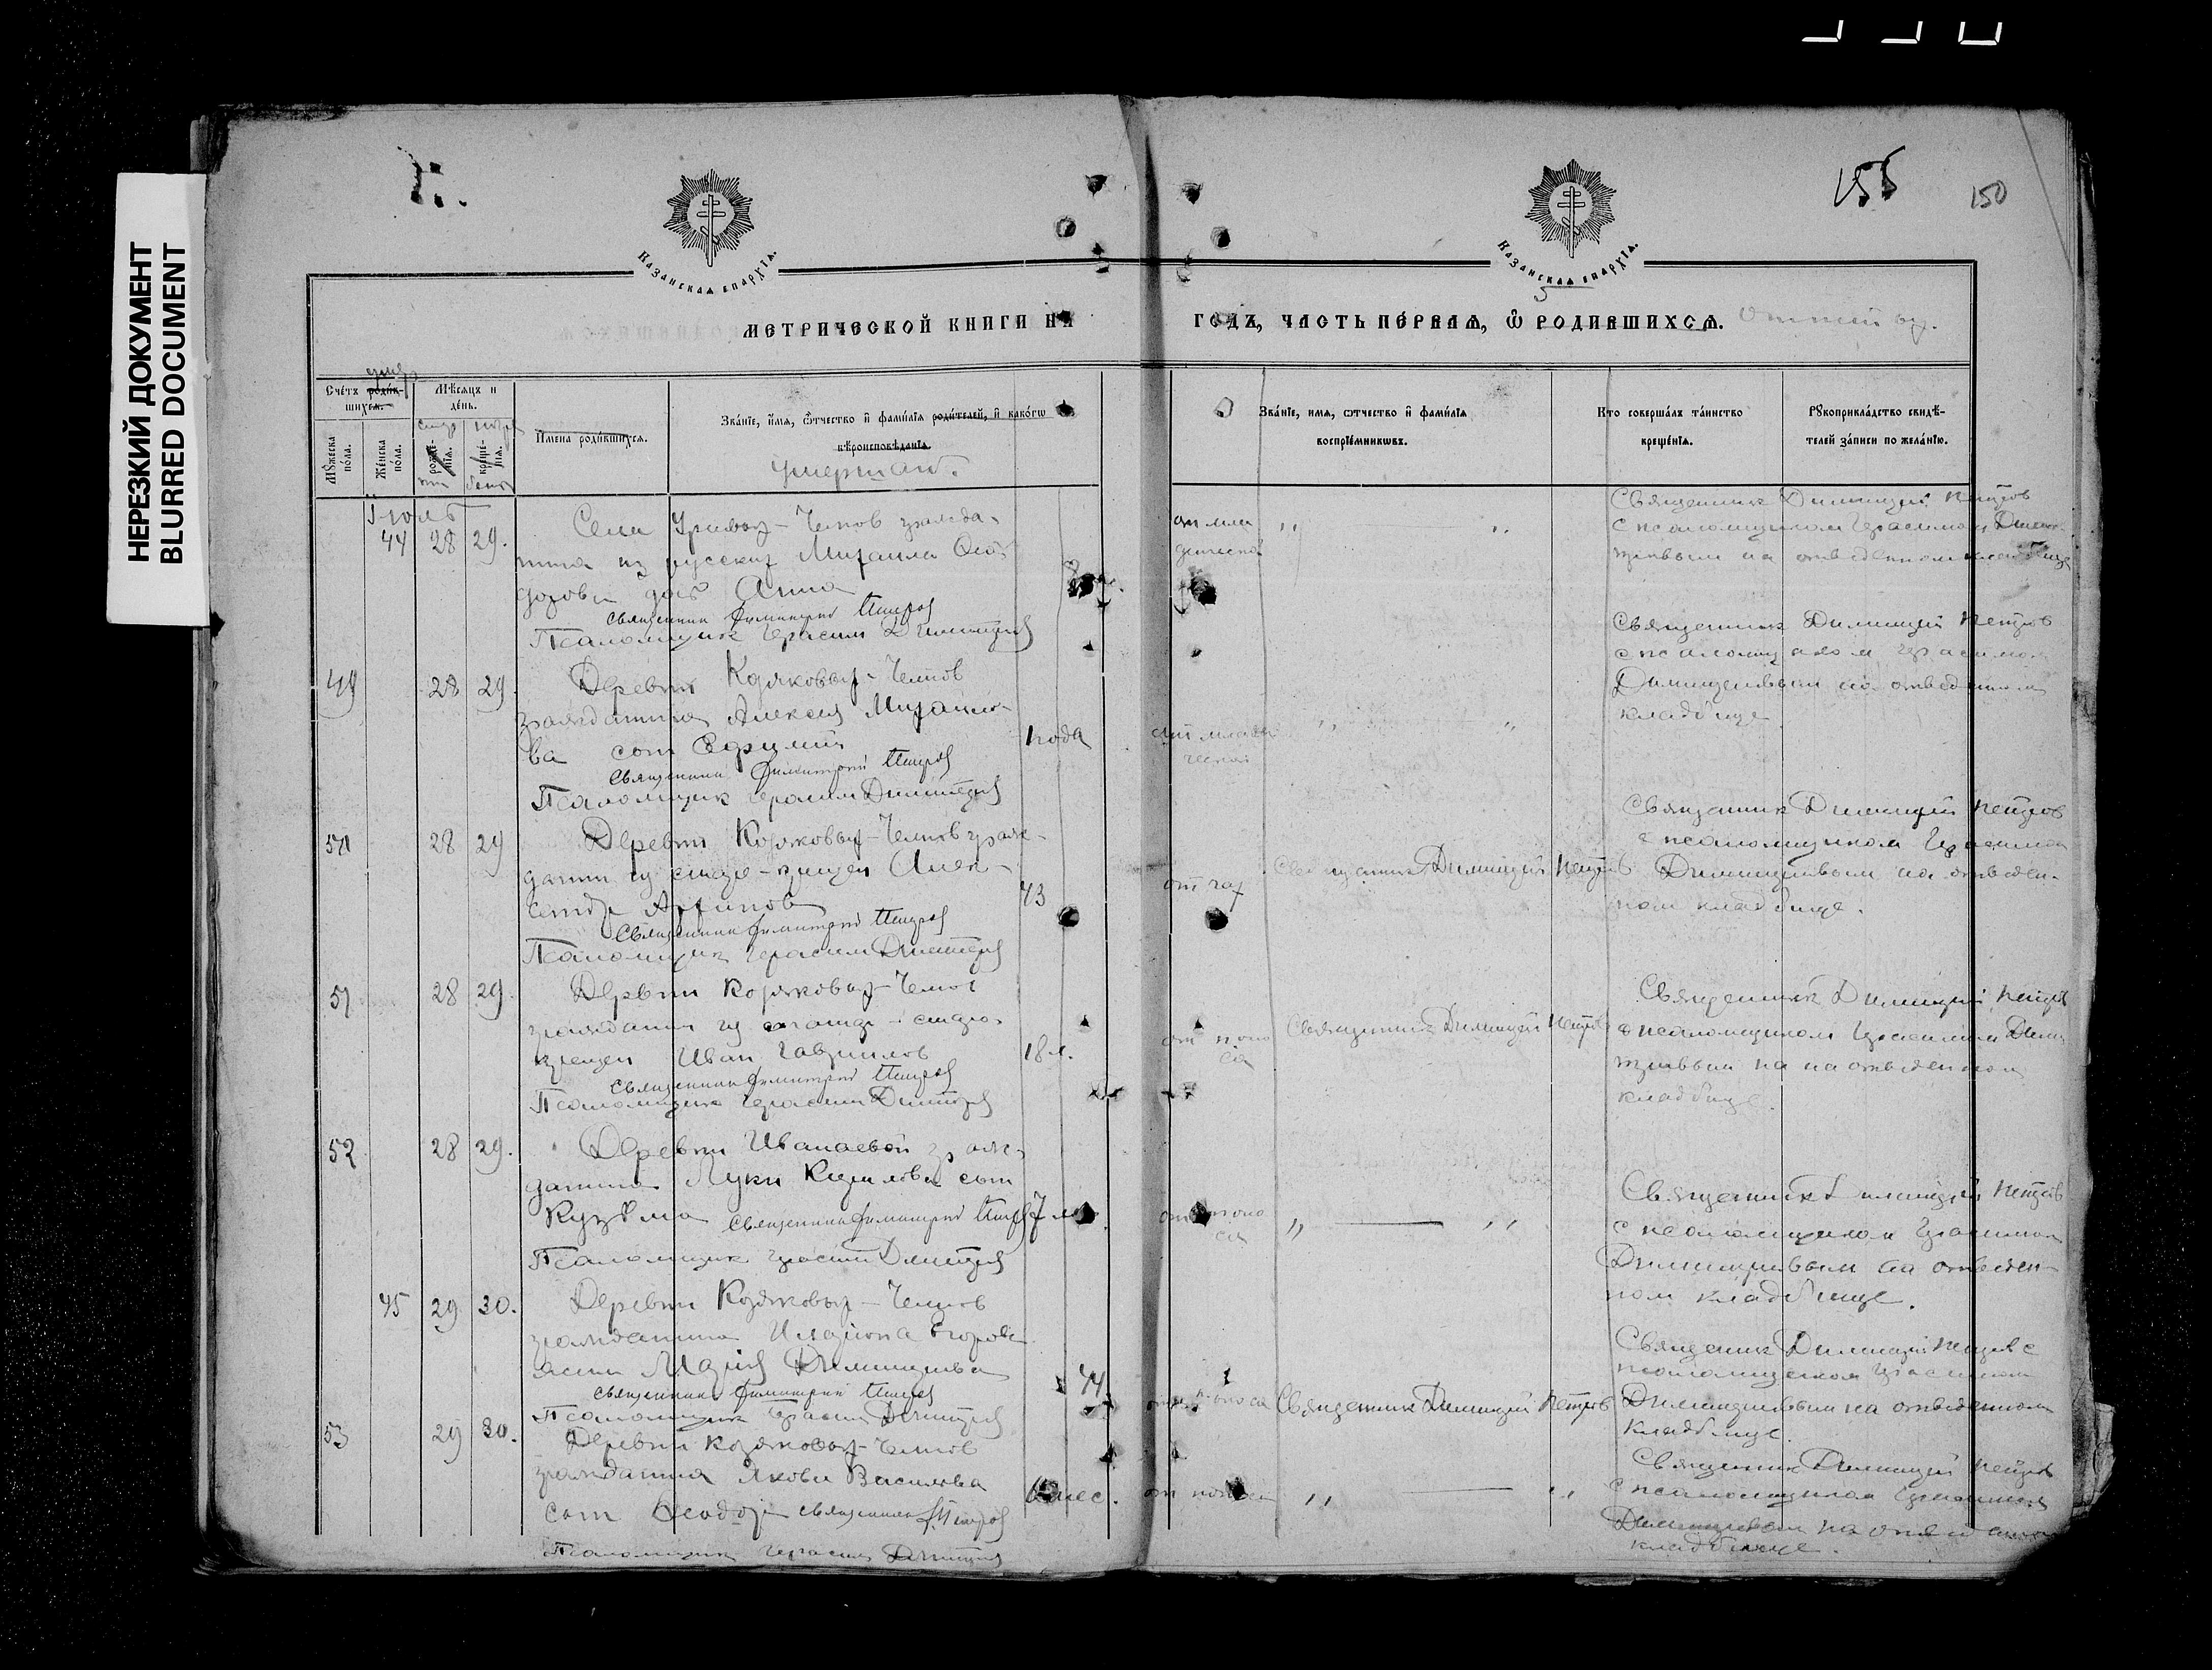 НЕРЕЗКИЙ ДОКУМЕНТ
BLURRED DOCUMENT
155
150
КАЗАНСКАѦ ЕПАРХІѦ.
КАЗАНСКАѦ ЕПАРХІѦ.
МЕТРИЧЕСКОЙ КНИГИ НА
ГОДЪ, ЧАСТЬ ПЕ́РВАѦ, Ѽ РОДИВШИХСѦ.
умер
Сче́тъ роди́в-
шихсѧ.
Мѣ́сѧцъ и
де́нь.
Мꙋ́жеска
по́ла.
Же́нска
по́ла.
рожде́-
нїѧ.
креще́-
нїѧ.
Имена родившихсѧ.
Зва́нїе, и́мѧ, ѻ҆́тчество и҆ фамилїѧ роди́телей, и҆ како́гѡ
вѣроисповѣ́данїѧ.
умершаго.
Зва́нїе, имѧ, ѻтчество и҆ фами́лїѧ
воспрїе́мниковъ.
Кто соверша́лъ та́инство
креще́нїѧ.
Рꙋкоприкла́дство свидѣ́-
телей за́писи по жела́нїю.
Іюль
44 28 29.
Села
из русских Михаила Фео
дорова дочь Анна
Священник Димитрий Петров
Псаломщик Герасим Димитриев
от мла
денческой
" "
Священник Димитрий Петров
с псаломщиком Герасимом Димит
риевым на отведенном кладбище
49 28 29.
Деревни Козяковых-Челнов
гражданина Алексея Михайло-
ва сын Ефимий
1 года
Священник Димитрий Петров
Псаломщик Герасим Димитриев
от младен
ческой
" "
Священник Димитрий Петров
с псаломщиком Герасимом
Димитриевым на отведенном
кладбище
50 28 29
Деревни Козяковых-Челнов граж-
данин из старо-крещен Алек-
сандр
43
Священник Димитрий Петров
Псаломщик Герасим Димитриев
от чах
Священник Димитрий Петров
Священник Димитрий Петров
с псаломщиком Герасимом
Димитриевым на отведен-
ном кладбище.
51 28 29.
Деревни Козяковых-Челнов
гражданин из старо-
крещен Иван Гаврилов
18 л.
Священник Димитрий Петров
Псаломщик Герасим Димитриев
от поно
са
Священник Димитрий Петров
Священник Димитрий Петров
с псаломщиком Герасимом Димит
риевым на на отведенном
кладбище.
52 28 29.
Деревни Иванаевой граж-
данина Луки Кирилова сын
Кузьма Священник Димитрий Петров
7
Псаломщик Герасим Димитриев
от поно
са
" — "
Священник Димитрий Петров
с псаломщиком Герасимом
Димитриевым на отведен-
ном кладбище.
45 29 30.
Деревни Козяковых-Челнов
гражданина Илариона Егорова
жена Мария Димитриева
44
Священник Димитрий Петров
Псаломщик Герасим Димитриев
от поноса
Священник Димитрий Петров
Священник Димитрий Петров с
псаломщиком Герасимом
Димитриевым на отведенном
кладбище.
53 29 30.
Деревни Козяковых-Челнов
гражданина Якова Васильева
сын Феодор священник Д. Петров
6 мес.
Псаломщик Герасим Димитриев
от поноса
" — "
Священник Димитрий Петров
с псаломщиком Герасимом
Димитриевым на отведенном
кладбище.